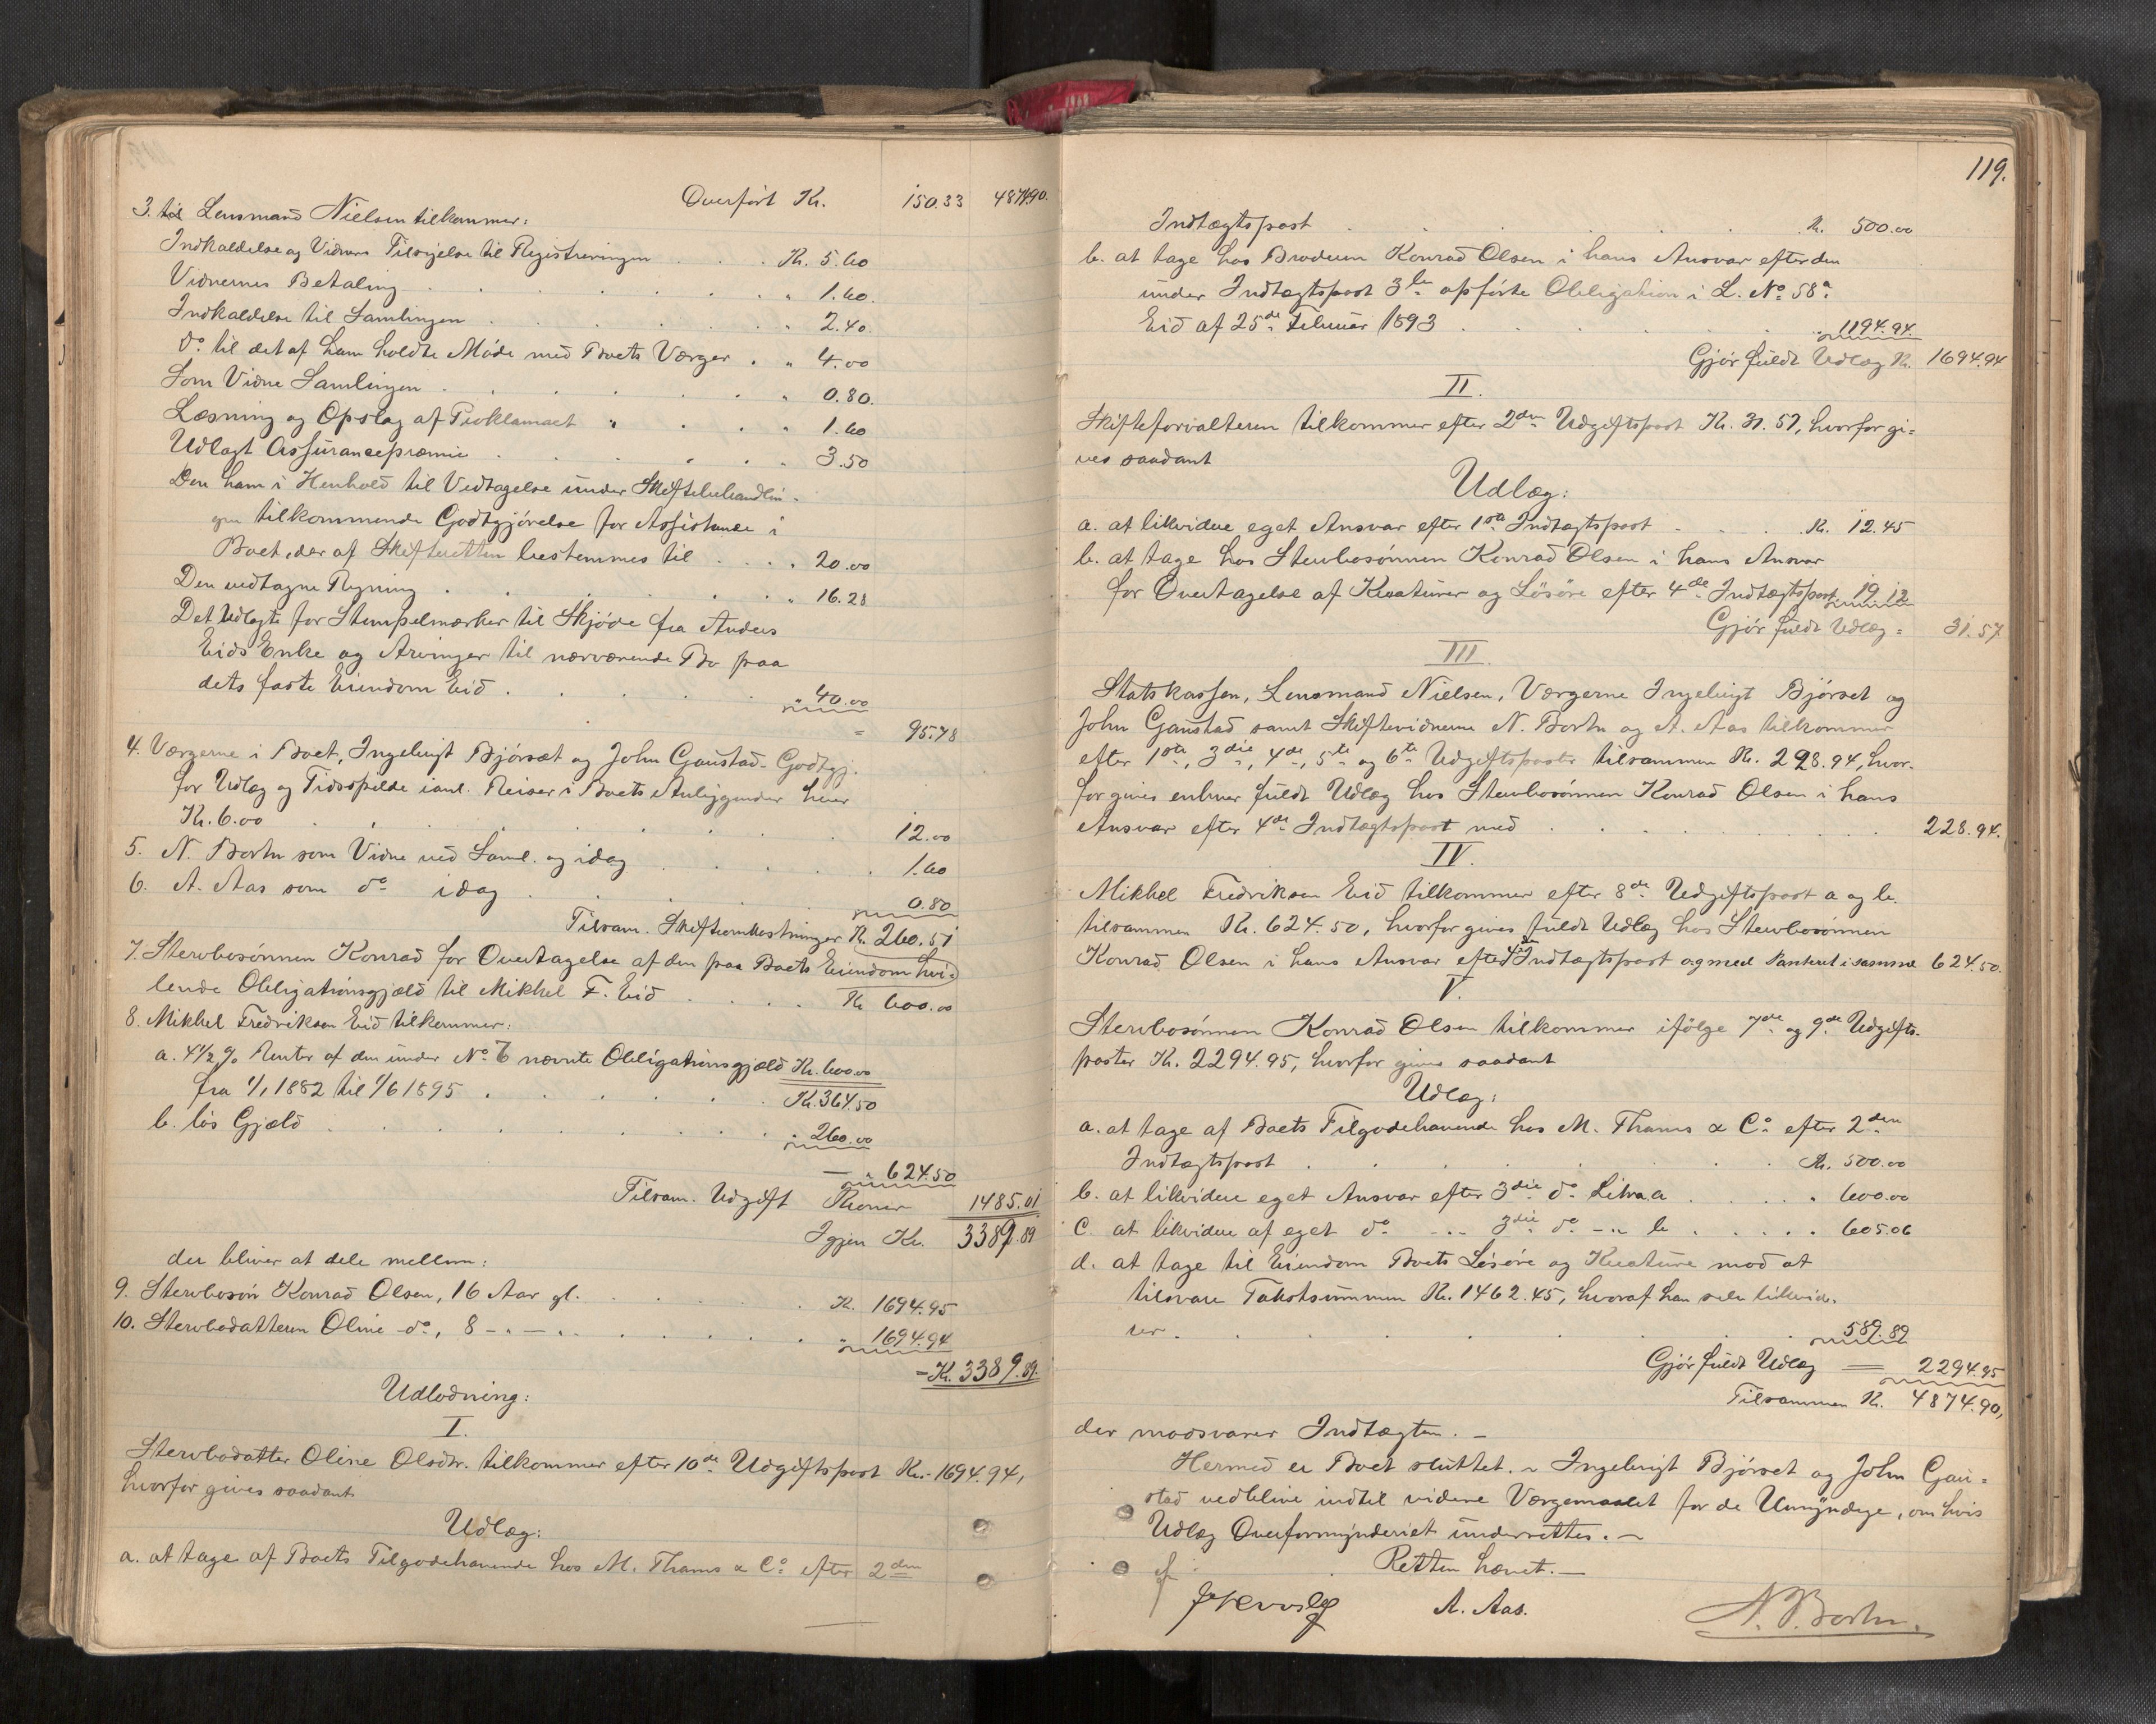 Overført Kr. 150.33 4874.90.
3. til Lensmand Nielsen tilkommer:
Indkaldelse og Vidners Tilsigelse til Registreringen . . . Kr. 5.60
Vidnernes Betaling . . . " 1.60.
Indkaldelse til Samlingen . . . " 2.40.
do til det af ham holdte Møde med Boets Værger . " 4.00
Som Vidne Samlingen . . . " 0.80.
Læsning og Opslag af Proklamaet " . . " 1.60
Udlagt Assurancepræmie . . . " 3.50
Den ham i Henhold til Vedtagelse under Skiftebehandlin-
gen tilkommende Godtgjørelse for Assistance i
Boet, der af Skifteretten bestemmes til . . . . 20.00
Den vedtagne Regning . . . " 16.28
Det Udlagte for Stempelmærker til Skjøde fra Anders
Eids Enke og Arvinger til nærværende Bo paa
dets faste Eiendom Eid . . . " 40.00
= 95.78
4. Værgerne i Boet, Ingebrigt Bjørset og John Gaustad - Godtgj.
for Udlæg og Tidsspilde ianl. Reiser i Boets Anliggender hver
Kr. 6.00 . . . 12.00
5. N. Bortn som Vidne ved Saml. og idag . . . 1.60
6. A. Aas som do idag . . . 0.80
Tilsam. Skifteomkostninger Kr. 260.51
7. Stervbosønnen Konrad for Overtagelse af den paa Boets Eiendom hvi-
lende Obligationsgjæld til Mikkel F. Eid . . . . Kr 600.00
8. Mikkel Fredriksen Eid tilkommer:
a. 4 1/2 % Renter af den under No 6 nævnte Obligationsgjæld Kr. 600.00
fra 1/1 1882 til 1/6 1895 . . . Kr. 364.50
b. løs Gjæld . . . " 260.00
— " 624.50
Tilsam. Udgift Kroner 1485.01
Igjen Kr. 3389.89
der bliver at dele mellem:
9. Stervbosøn Konrad Olsen, 16 Aar gl. . . . Kr. 1694.95
10. Stervbodatteren Oline do, 8 - " - " . . . " 1694.94
= Kr. 3389.89.
Udlodning:
I.
Stervbodatter Oline Olsdtr. tilkommer efter 10de Udgiftspost Kr. 1694.94,
hvorfor gives saadant
Udlæg:
a. at tage af Boets Tilgodehavende hos M. Thams & Co efter 2den
119.
Indtægtspost . . . Kr. 500.00
b. at tage hos Broderen Konrad Olsen i hans Ansvar efter den
under Indtægtspost 3 b opførte Obligation i L. No 58a
Eid af 25de Februar 1893 . . . " 1194.94
Gjør fuldt Udlæg Kr. 1694.94
II.
Skifteforvalteren tilkommer efter 2den Udgiftspost Kr. 31.57, hvorfor gi=
ves saadant
Udlæg:
a. at likvidere eget Ansvar efter 1ste Indtægtspost . . . Kr. 12.45
b. at tage hos Stervbosønnen Konrad Olsen i hans Ansvar
for Overtagelse af Kreaturer og Løsøre efter 4de Indtægtspost 19.12
Gjør fuldt Udlæg = 31.57
III.
Statskassen, Lensmand Nielsen, Værgerne Ingebrigt Bjørset og
John Gaustad samt Skiftevidnerne N. Bortn og A. Aas tilkommer
efter 1ste, 3die, 4de, 5te og 6te Udgiftsposter tilsammen Kr. 228.94, hvor-
for gives enhver fuldt Udlæg hos Stervbosønnen Konrad Olsen i hans
Ansvar efter 4de Indtægtspost med . . . 228.94.
IV.
Mikkel Fredriksen Eid tilkommer efter 8de Udgiftspost a og b.
tilsammen Kr. 624.50, hvorfor gives fuldt Udlæg hos Stervbosønnen
Konrad Olsen i hans Ansvar efter 4de Indtægtspost og med Panteret i samme 624.50.
V.
Stervbosønnen Konrad Olsen tilkommer ifølge 7de og 9de Udgifts-
poster Kr. 2294.95, hvorfor gives saadant
Udlæg:
a. at tage af Boets Tilgodehavende hos M. Thams & Co efter 2den
Indtægtspost . . . Kr. 500.00
b. at likvidere eget Ansvar efter 3die do Litra a . . . " 600.00
c. at likvidere af eget do - " - 3die do - " b . . . " 605.06
d. at tage til Eiendom Boets Løsøre og Kreature mod at
tilsvare Takstsummen Kr. 1462.45, hvoraf han selv likvide-
rer . . . " 589.89
Gjør fuldt Udlæg = 2294.95
Tilsammen Kr. 4874.90,
der modsvarer Indtægten. —
Hermed er Boet sluttet. - Ingebrigt Bjørset og John Gau=
stad vedblive indtil videre Værgemaalet for de Umyndige, om hvis
Udlæg Overformynderiet underrettes. —
Retten hævet. —
A. Aas. N. Bortn.